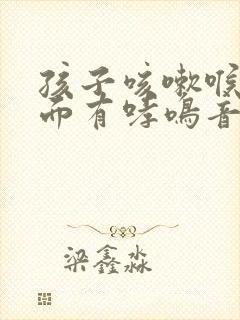 孩子咳嗽喉
而有哮鸣音
梁鑫淼